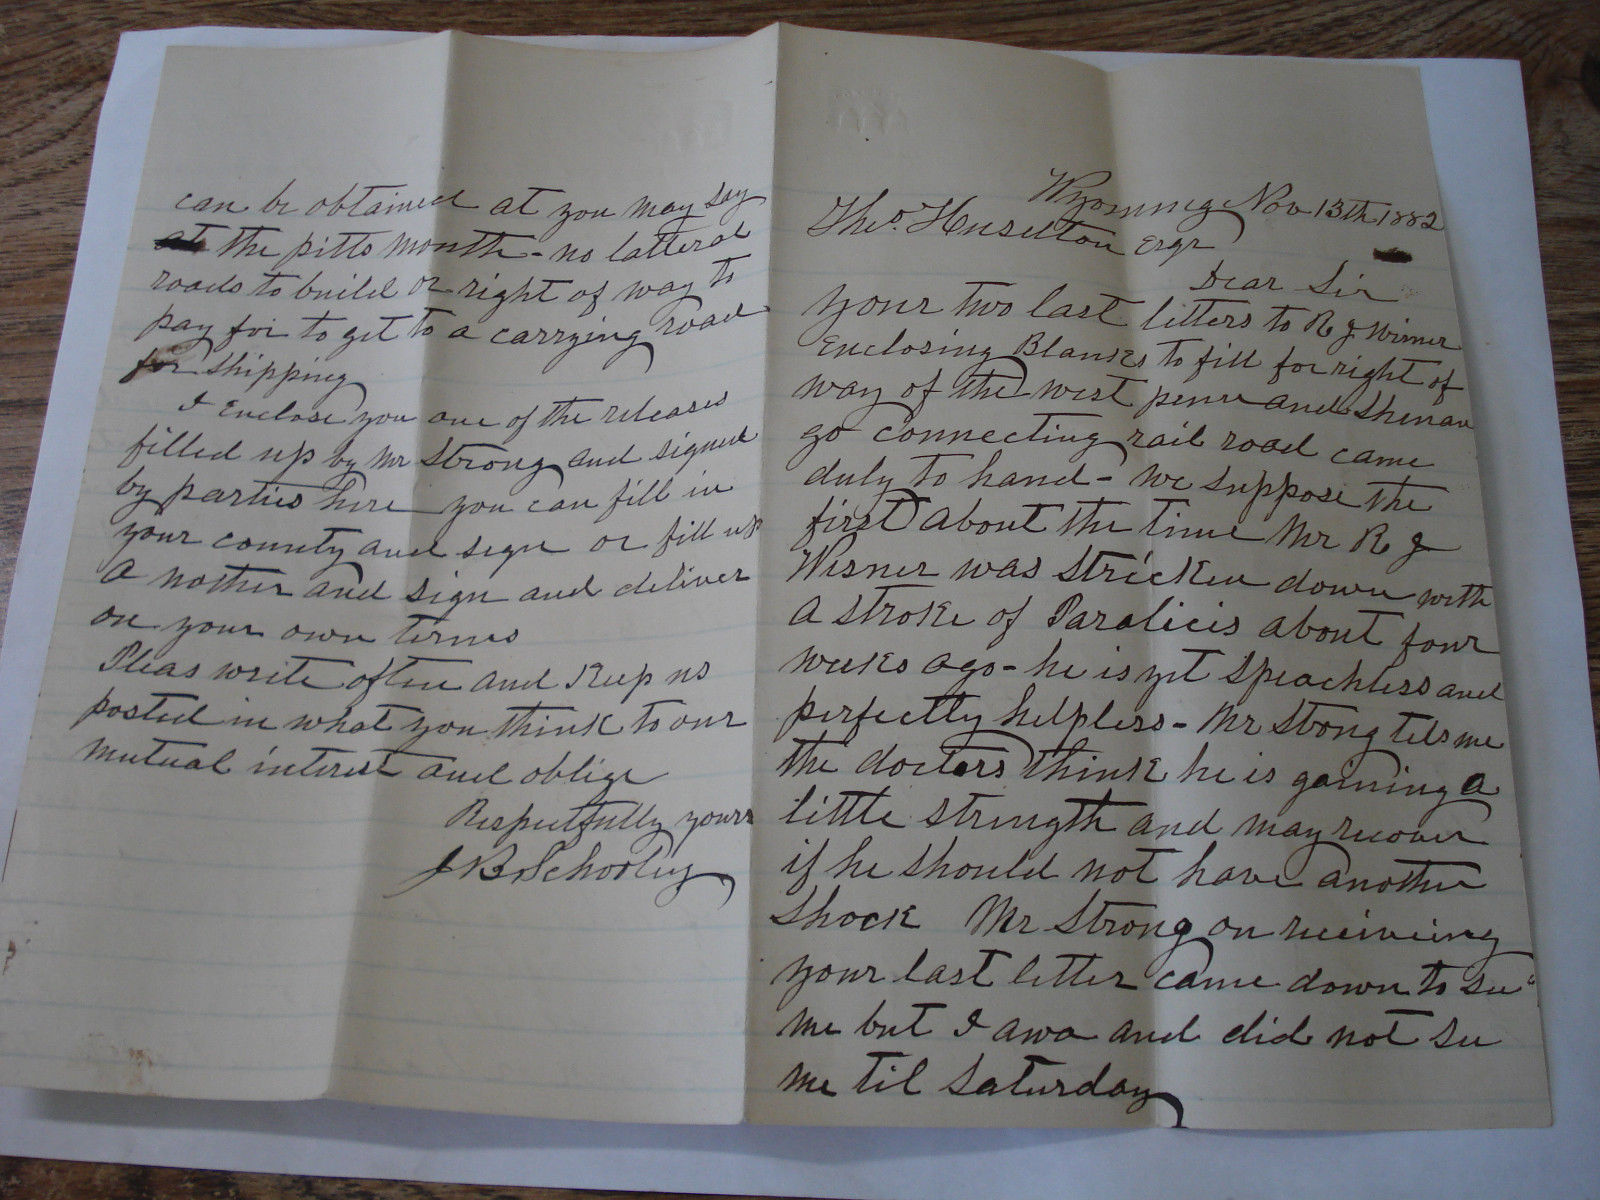 Wyoming Nov 13th 1882
Theo. Huselton Esqr
Dear Sir
your two last letters to R J Wisner
Enclosing Blanks to fill for right of
way of the west penn and Shenan
go connecting rail road came
duly to hand - we suppose the
first about the time Mr R J
Wisner was stricken down with
a stroke of Paralicis about four
weeks ago - he is yet speachless and
perfectly helpless - Mr Strong tels me
the docters think he is gaining a
little strength and may recover
if he should not have another
shock Mr Strong on receiveing
your last letter came down to see
me but I awa and did not see
me til Saturday
can be obtained at you may say
at the pitts mouth - no latteral
roads to build or right of way to
pay for to get to a carrying road
for shipping
I Enclose you one of the releases
filled up by Mr Strong and signed
by parties here you can fill in
your county and sign or fill up
a nother and sign and deliver
on your own terms
Pleas write often and Keep us
posted in what you think to our
mutual interest and oblige
Respectfully yours
J B Schooley